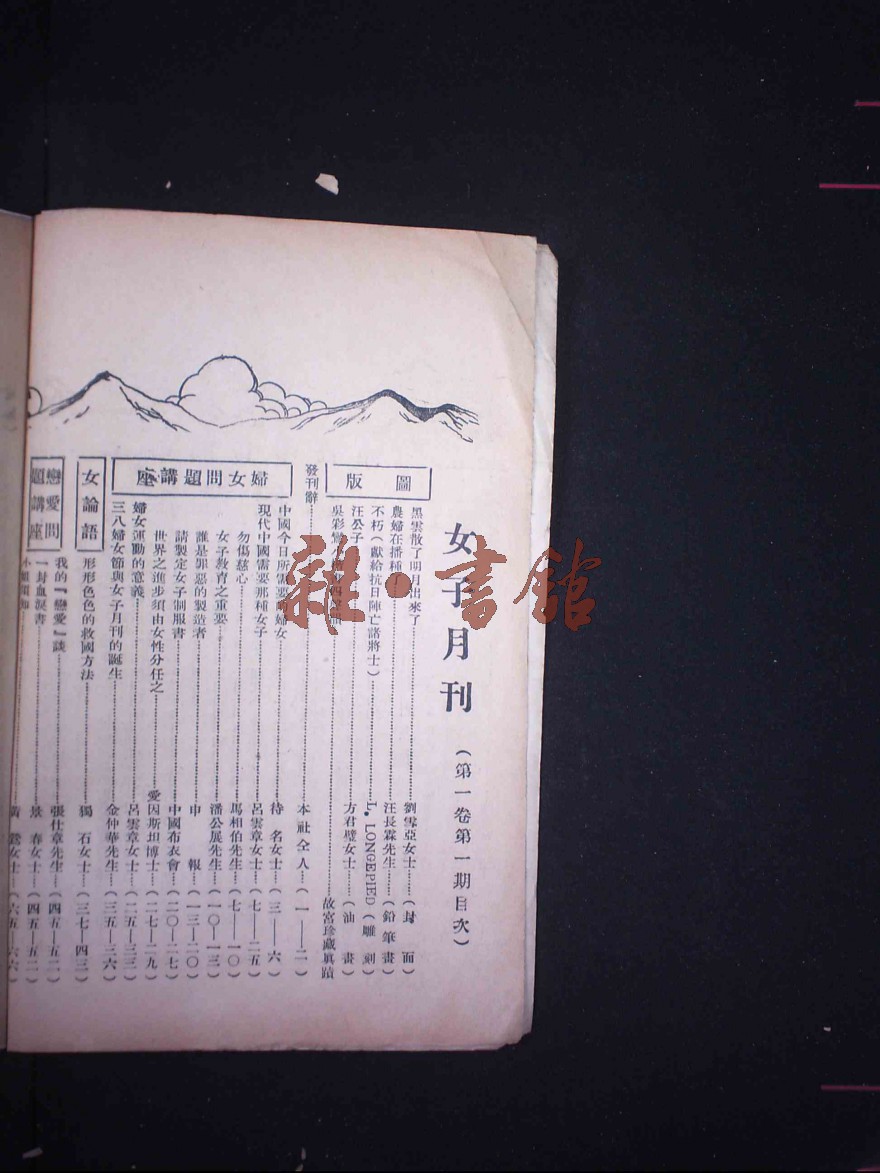 女子月刊 (第一卷第一期目次)
圖版
黑雲散了明月出來了 劉雪亞女士 (封面)
農婦在播種了 汪長霖先生 (鉛筆畫)
不朽(獻給抗日陣亡諸將士) L. LONGEPIED (雕刻)
汪公子 方君璧女士 (油畫)
吳彩鸞 故宮珍藏眞蹟
發刊辭 本社仝人 (一—二)
婦女問題講座
中國今日所需要的婦女 待名女士 (三—六)
現代中國需要那種女子 呂雲章女士 (七—二五)
勿傷慈心 馬相伯先生 (七—一〇)
女子教育之重要 潘公展先生 (一〇—一三)
誰是罪惡的製造者 申報 (一三—二〇)
請製定女子制服書 中國布衣會 (二〇—二七)
世界之進步須由女性分任之 愛因斯坦博士 (二七—二九)
婦女運動的意義 呂雲章女士 (二五—三三)
三八婦女節與女子月刊的誕生 金仲華先生 (三五—三六)
女論語
形形色色的救國方法 獨石女士 (三七—四三)
戀愛問題講座
我的『戀愛』談 張仕章先生 (四五—五二)
一封血淚書 景春女士 (四五—五二)
女士 (六五—六六)
雜·書館